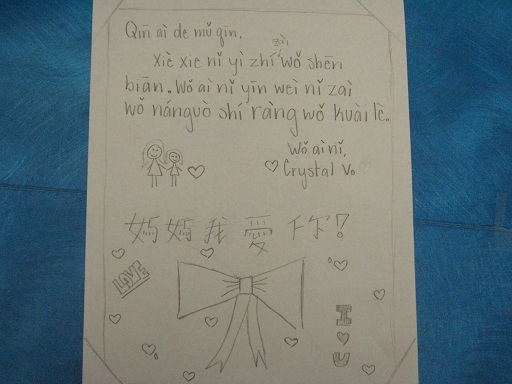 Qīn ài de mǔ qīn,
Xiè xie nǐ yì zhí zài wǒ shēn
biān. Wǒ ai nǐ yīn wèi nǐ zaì
wǒ nánguò shí ràng wǒ kuài lè.
Wǒ aì nǐ,
Crystal V.
媽媽我愛你!
LOVE
I
U